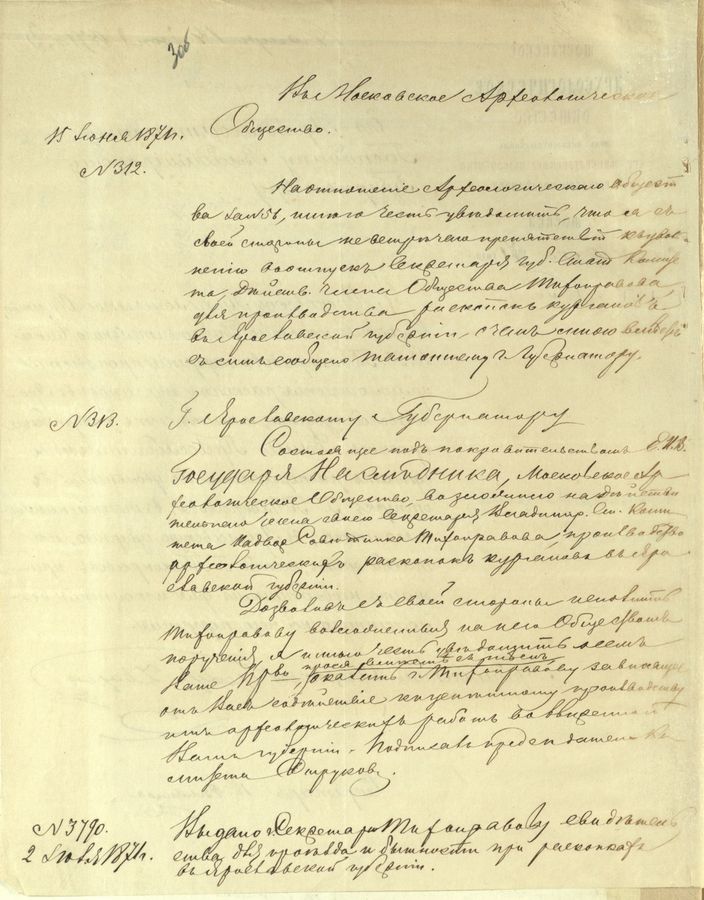 306
Въ Московское Археологическое
15 Июня 1871 г. Общество.
№ 312.
На отношеніе Археологическаго Общест
ва за № 56, имѣю честь увѣдомить, что я съ
своей стороны не встрѣчаю препятствій къ уволь
ненію въ отпускъ Секретаря Губ. Стат. Коми
та, Дѣйств. члена Общества Тихонравова
для производства раскопокъ кургановъ
въ Ярославской губерніи, о чемъ мною вмѣстѣ
съ симъ сообщено тамошнему г. Губернатору.
№ 313. Г. Ярославскому Губернатору
Состоящее подъ покровительствомъ Е. И. В.
Государя Наслѣдника, Московское Ар
хеологическое Общество, возложило на дѣйстви
тельнаго члена своего Секретаря Владимір. Ст. Коми
тета Надвор. Совѣтника Тихонравова, производство
археологическихъ раскопокъ кургановъ въ Яро
славской губерніи.
Дозволивъ съ своей стороны исполнить
Тихонравову возложенныя на него Обществомъ
порученія, я имѣю честь увѣдомить о семъ
Ваше Пр-во, прося
оказать г. Тихонравову зависящее
отъ Васъ содѣйствіе къ успѣшному производству
имъ археологическихъ работъ во ввѣренной
Вамъ губерніи. Подписалъ предсѣдатель Ко
митета Струковъ.
№ 3790.
2 Іюля 1871 г.
Выдано г. Секретарю Тихонравову свидѣтель
ство для проѣзда и бытности при раскопкахъ
въ Ярославской губерніи.